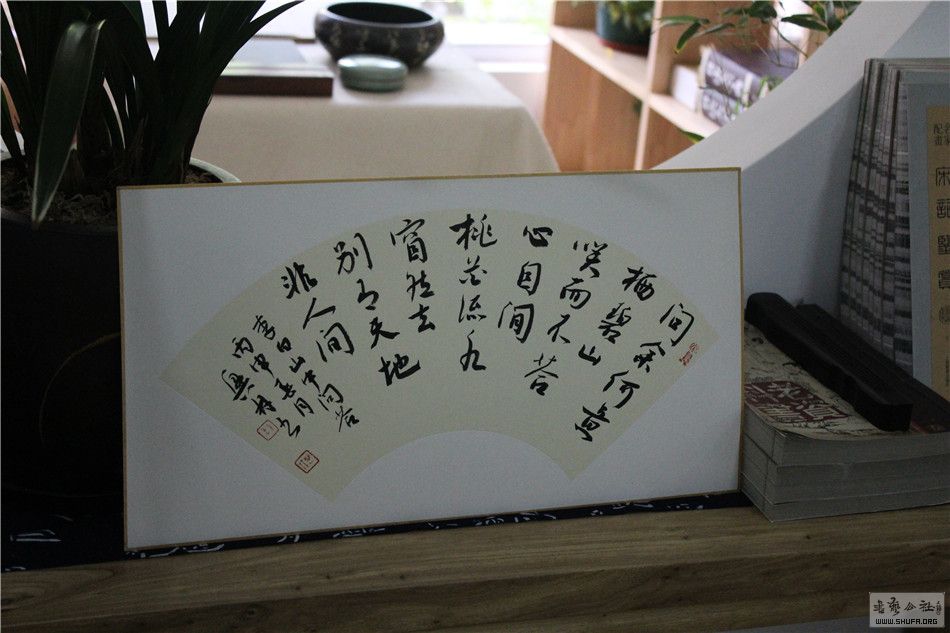 问余何意
栖碧山
笑而不答
心自间
桃花流水
窅然去
别有天地
非人间
李白山中问答
丙申春月
书艺公社
WWW.SHUFA.ORG